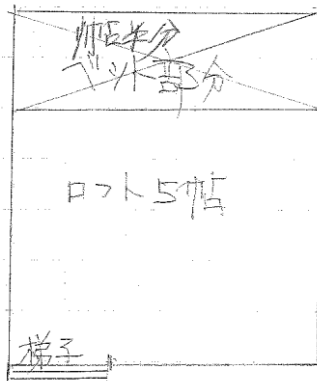 帖半分
ベット部分
ロフト5帖
梯子